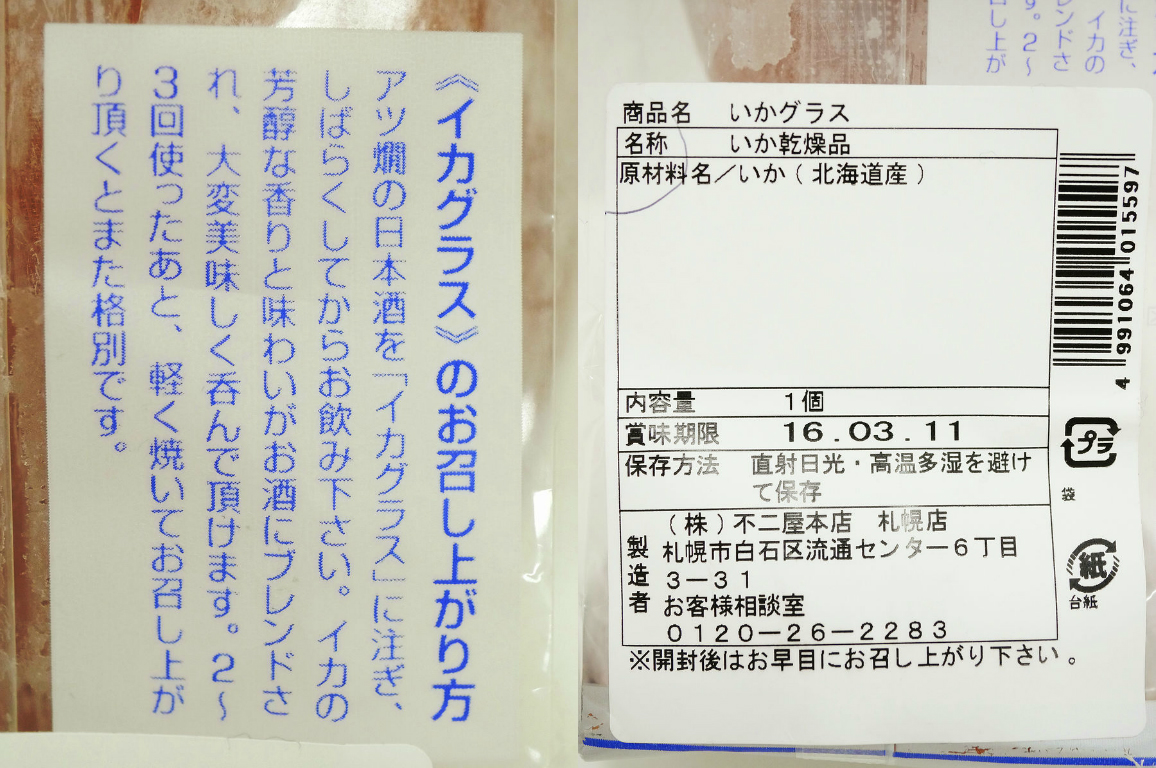 《イカグラス》のお召し上がり方
アツ燗の日本酒を「イカグラス」に注ぎ、
しばらくしてからお飲み下さい。イカの
芳醇な香りと味わいがお酒にブレンドさ
れ、大変美味しく呑んで頂けます。2〜
3回使ったあと、軽く焼いてお召し上が
り頂くとまた格別です。
に注ぎ、
イカの
ンドさ
す。2〜
召し上が
商品名 いかグラス
名称 いか乾燥品
原材料名／いか（北海道産）
内容量 1個
賞味期限 16.03.11
保存方法 直射日光・高温多湿を避け
て保存
製造者
（株）不二屋本店 札幌店
札幌市白石区流通センター6丁目
3－31
お客様相談室
0120－26－2283
※開封後はお早目にお召し上がり下さい。
4 991064 015597
プラ
袋
紙
台紙